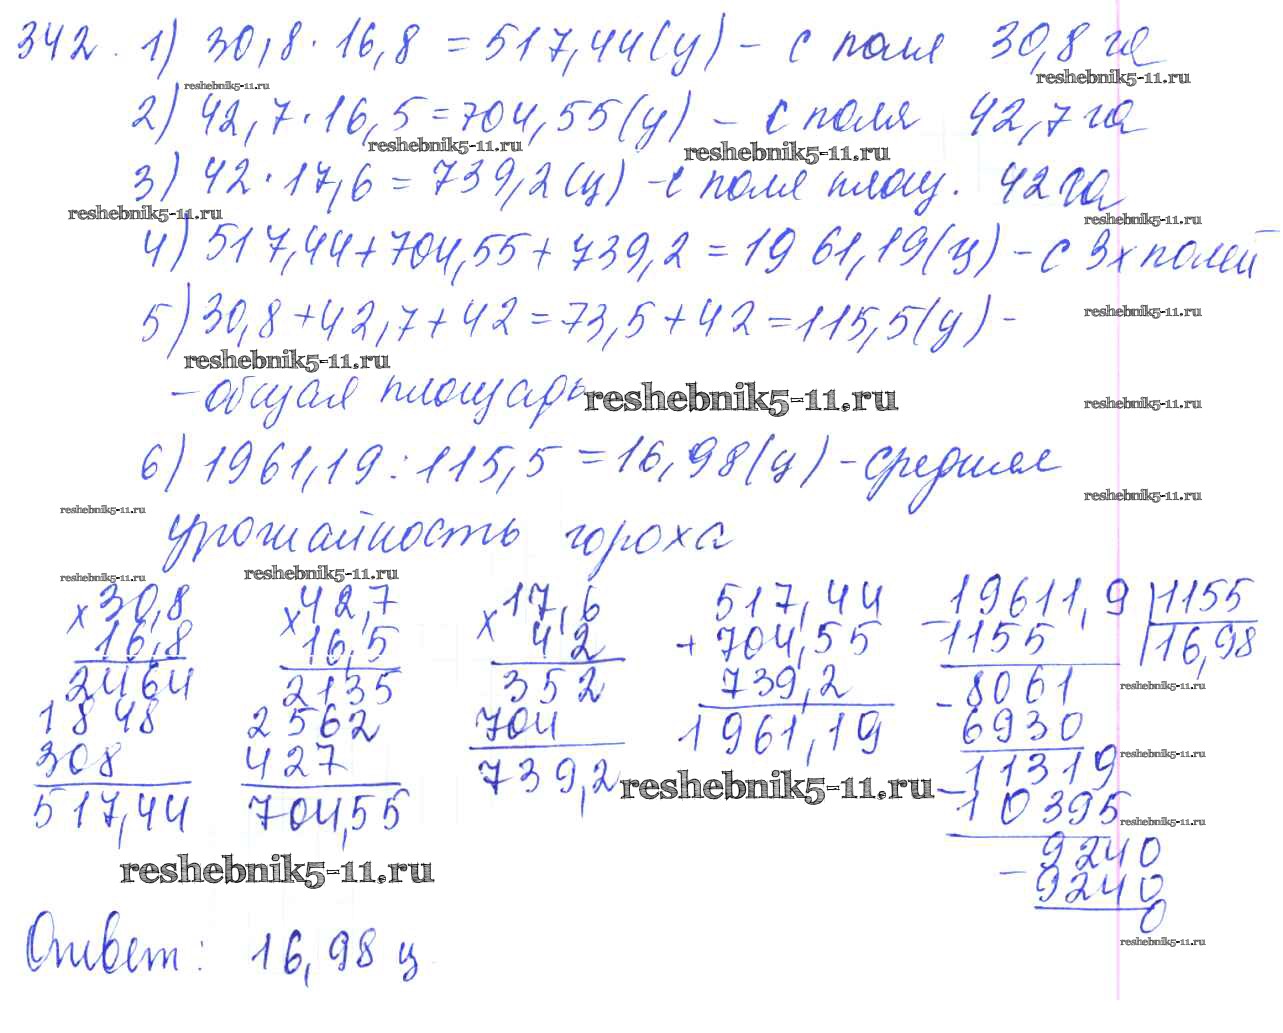 342. 1) 30,8 · 16,8 = 517,44 (ц) – с поля 30,8 га
reshebnik5-11.ru
reshebnik5-11.ru
2) 42,7 · 16,5 = 704,55 (ц) – с поля 42,7 га
reshebnik5-11.ru
reshebnik5-11.ru
3) 42 · 17,6 = 739,2 (ц) – с поля площ. 42 га
reshebnik5-11.ru
reshebnik5-11.ru
4) 517,44 + 704,55 + 739,2 = 1961,19 (ц) – с 3х полей
5) 30,8 + 42,7 + 42 = 73,5 + 42 = 115,5 (ц) –
reshebnik5-11.ru
reshebnik5-11.ru
– общая площадь
reshebnik5-11.ru
reshebnik5-11.ru
6) 1961,19 : 115,5 = 16,98 (ц) – средняя
reshebnik5-11.ru
reshebnik5-11.ru
урожайность гороха
reshebnik5-11.ru
reshebnik5-11.ru
× 30,8
16,8
2464
1848
308
517,44
× 42,7
16,5
2135
2562
427
704,55
× 17,6
42
352
704
739,2
517,44
+ 704,55
739,2
1961,19
– 19611,9 | 1155
1155 | 16,98
– 8061
6930
– 11319
10395
– 9240
9240
0
reshebnik5-11.ru
reshebnik5-11.ru
reshebnik5-11.ru
reshebnik5-11.ru
reshebnik5-11.ru
Ответ: 16,98 ц
reshebnik5-11.ru